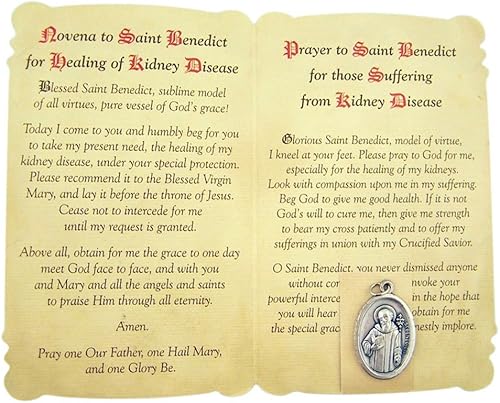 Novena to Saint Benedict
for Healing of Kidney Disease
Blessed Saint Benedict, sublime model
of all virtues, pure vessel of God's grace!
Today I come to you and humbly beg for you
to take my present need, the healing of my
kidney disease, under your special protection.
Please recommend it to the Blessed Virgin
Mary, and lay it before the throne of Jesus.
Cease not to intercede for me
until my request is granted.
Above all, obtain for me the grace to one day
meet God face to face, and with you
and Mary and all the angels and saints
to praise Him through all eternity.
Amen.
Pray one Our Father, one Hail Mary,
and one Glory Be.
Prayer to Saint Benedict
for those Suffering
from Kidney Disease
Glorious Saint Benedict, model of virtue,
I kneel at your feet. Please pray to God for me,
especially for the healing of my kidneys.
Look with compassion upon me in my suffering.
Beg God to give me good health. If it is not
God's will to cure me, then give me strength
to bear my cross patiently and to offer my
sufferings in union with my Crucified Savior.
O Saint Benedict, you never dismissed anyone
without invoke your
powerful in the hope that
you will hear obtain for me
the special implore.